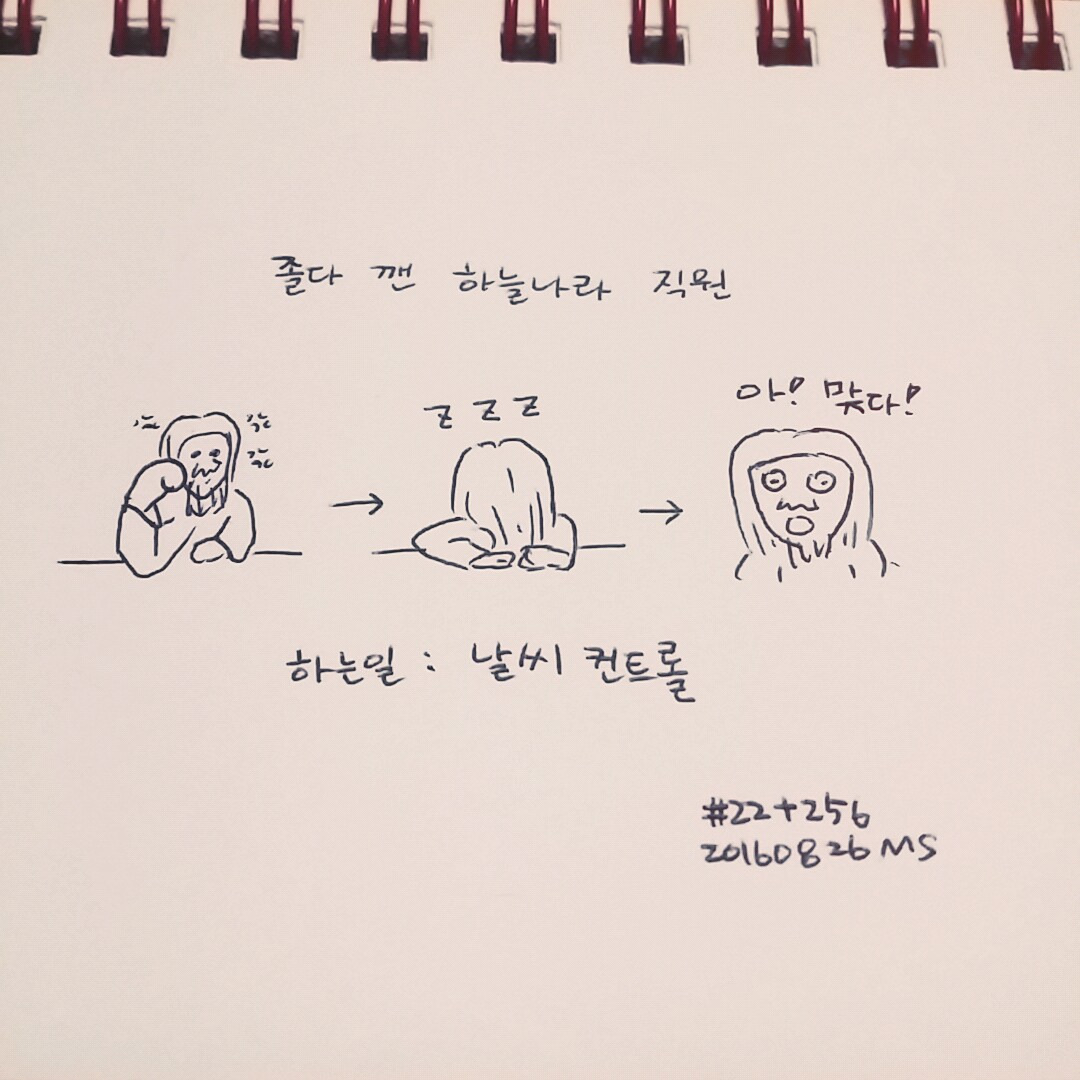 졸다 깬 하늘나라 직원
아! 맞다!
z z z
하는일 : 날씨 컨트롤
#22+256
20160826 MS